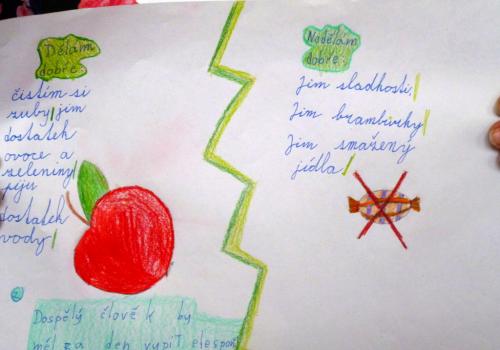 Dělám
dobře:
čistím si
zuby jím
dostatek
ovoce a
zeleniny
piju
dostatek
vody
Dospělý člověk by
měl za den vypít alespoň
Nedělám
dobře:
Jím sladkosti.
Jím brambůrky
Jím smažený
jídla